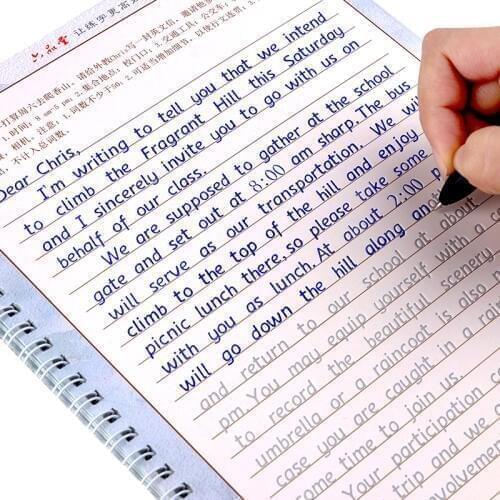 六品堂 让练字更高
打算周六去爬香山, 请给外教Chris写一封英文信, 邀请他
2. 集合地点: 校门口; 3. 交通工具: 公交车;
相机。注意: 1. 词数不少于50; 2. 可适当增加细节, 以使行文连贯; 3.
, 不计入总词数。
Dear Chris,
I'm writing to tell you that we intend
to climb the Fragrant Hill this Saturday
and I sincerely invite you to go with us on
behalf of our class.
We are supposed to gather at the school
gate and set out at 8:00 am sharp. The bus
will serve as our transportation. We will
climb to the top of the hill and enjoy
picnic lunch there, so please take some
with you as lunch. At about 2:00 p
will go down the hill along an
and return to our school at about
pm. You may equip yourself with a
to record the beautiful scenery.
umbrella or a raincoat is also
case you are caught in a rain
some time to join us.
Your participation
trip and we